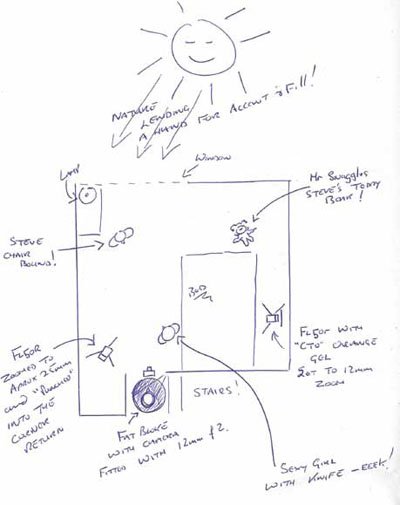 NATURE
LENDING
A HAND FOR ACCENT & FILL!
WINDOW
LAMP
Mr Snuggles
STEVE'S TEDDY
BEAR!
STEVE
CHAIR
BOUND!
BED
FL50R
ZOOMED TO
APROX 25mm
AND "PUNCHED"
INTO THE
CORNER
RETURN
FL50R WITH
"CTO" ORANGE
GEL
SET TO 12mm
ZOOM
STAIRS!
FAT BLOKE
WITH CAMERA
FITTED WITH 12mm f2.
SEXY GIRL
WITH KNIFE - EEEK!